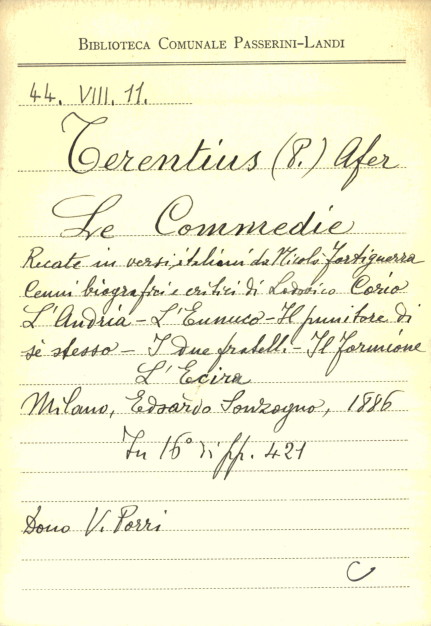 BIBLIOTECA COMUNALE PASSERINI-LANDI
44. VIII. 11.
Terentius (P.) Afer
Le Commedie
Recate in versi italiani da Nicolò Fortiguerra
Cenni biografici e critici di Lodovico Corio
L'Andria - L'Eunuco - Il punitore di
sè stesso - I due fratelli - Il Formione
L'Ecira
Milano, Edoardo Sonzogno, 1886
In 16° di pp. 421
Dono V. Porri
C